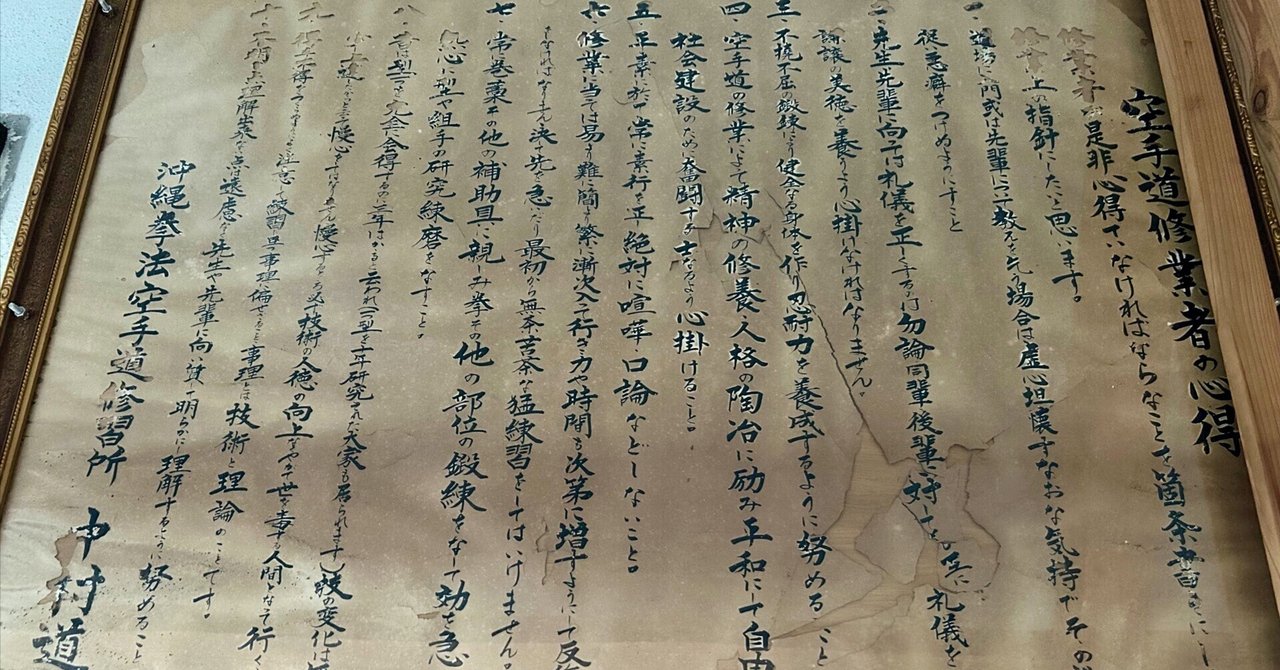 空手道修業者の心得
修業者が是非心得ていなければならなことを箇条書きにし
修業上の指針にしたいと思います。
一、道場に門或は先輩について教えを乞う場合は虚心坦懐すなおな気持でその
従い悪癖をつけぬようにすこと
二、先生先輩に向っては礼儀を正しくするは勿論同輩後輩に対しても互に礼儀を
謙譲の美徳を養うよう心掛けなければなりません。
三、不撓不屈の鍛錬により健全なる身体を作り忍耐力を養成するように努めること
四、空手道の修業によって精神の修養人格の陶冶に励み平和にして自由
社会建設のため奮闘する士なるよう心掛けること。
五、平素に於て常に素行を正し絶対に喧嘩・口論などしないこと。
六、修業に当っては易より難に簡より繁に漸次入って行き力や時間も次第に増すようにして反
なければなりません決して先を急いだり最初から無茶苦茶な猛練習をしてはいけません。
七、常に巻藁其の他の補助具に親しみ拳その他の部位の鍛練をなして効を急
心に型や組手の研究練磨をなすこと。
八、昔は型一つを完全に会得するの三年はかかると云われ一つの型を十年研究された大家も居られます 技の変化は
慢心をしてはなりません慢心するものは必ず技術の人徳の向上をやめて世を毒する人間となって行く
九、注意して練習し又事理に偏せざること事理とは技術と理論のことです。
十、不明な点理解出来ない点は遠慮なく先生や先輩に向い質して明らかに理解するように努めること
沖縄拳法空手道修習所 中村道